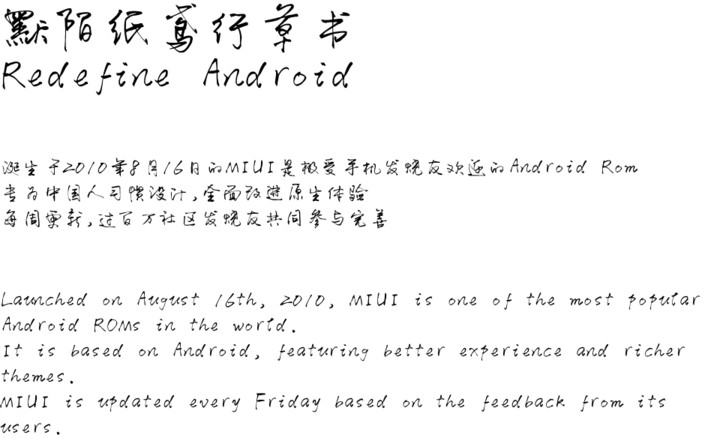 默陌纸鸢行草书
Redefine Android
诞生于2010年8月16日的MIUI是极受手机发烧友欢迎的Android Rom
专为中国人习惯设计,全面改进原生体验
每周更新,过百万社区发烧友共同参与完善
Launched on August 16th, 2010, MIUI is one of the most popular
Android ROMs in the world.
It is based on Android, featuring better experience and richer
themes.
MIUI is updated every Friday based on the feedback from its
users.